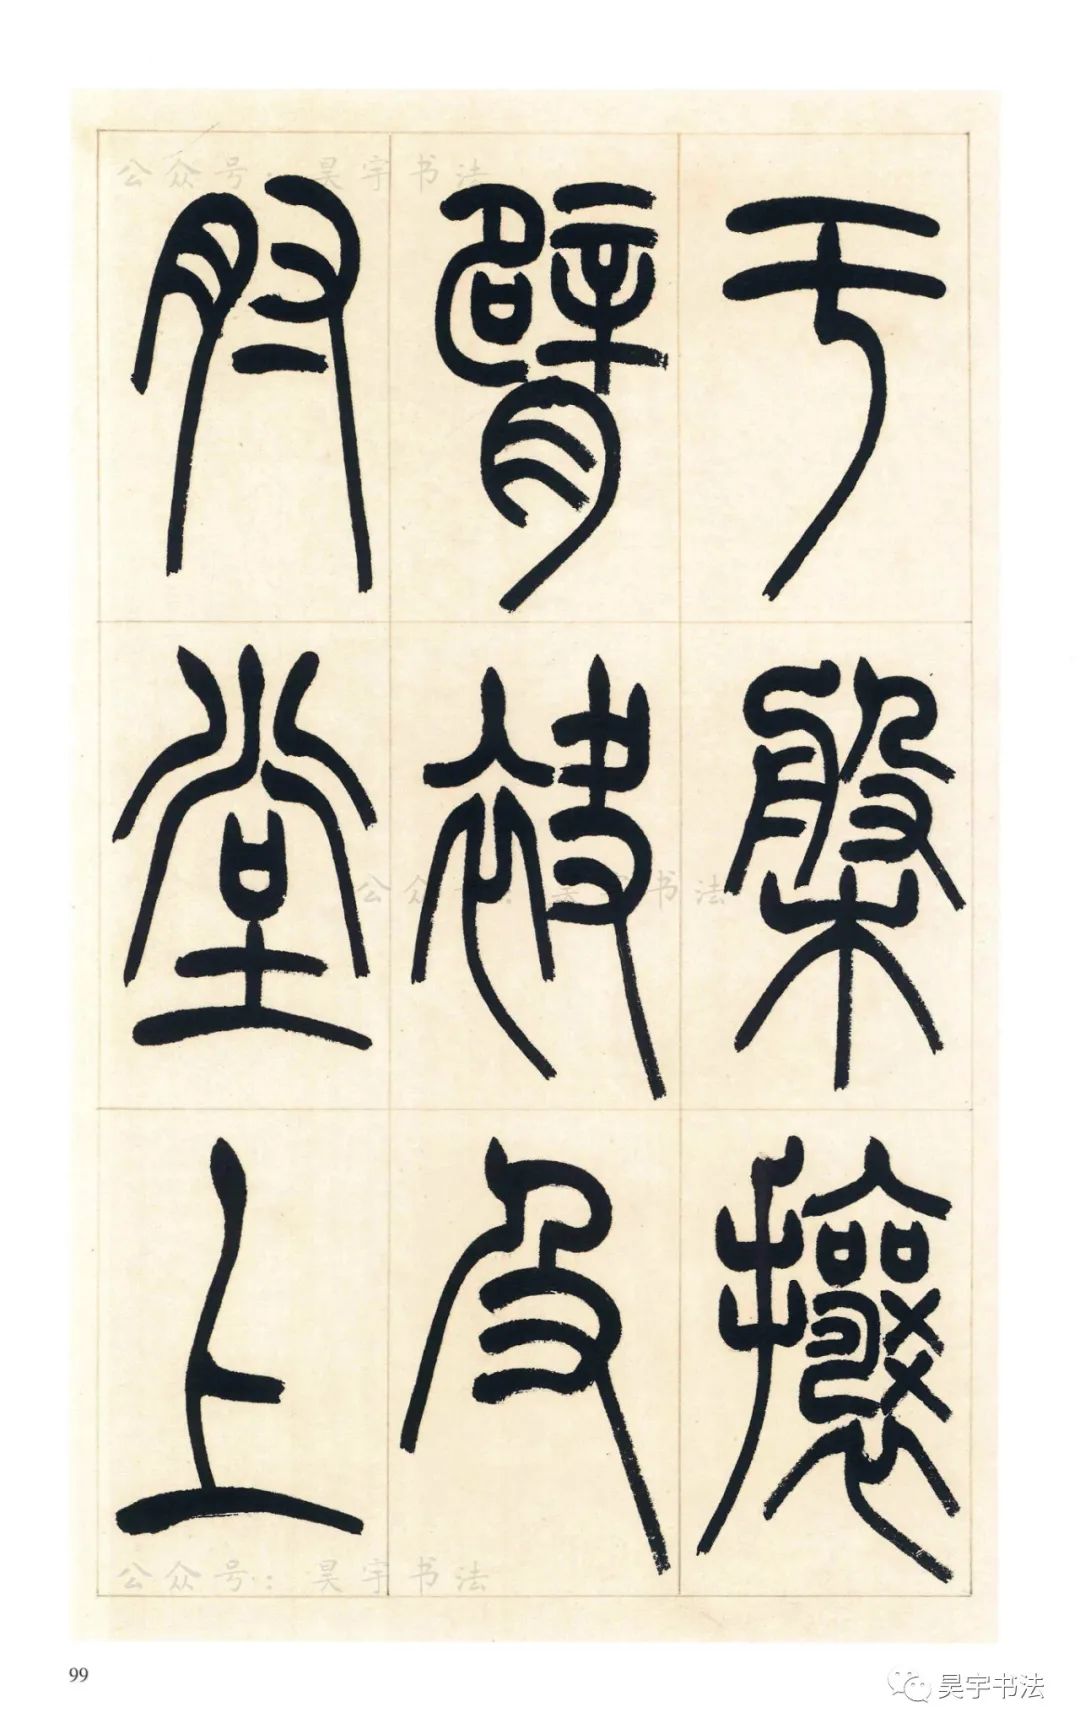 于槃攘
臂袂及
肘堂上
公众号：昊宇书法
公众号：昊宇书法
公众号：昊宇书法
99
昊宇书法